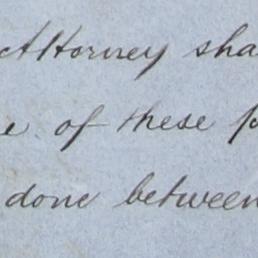 Attorney sha
e of these p
done between